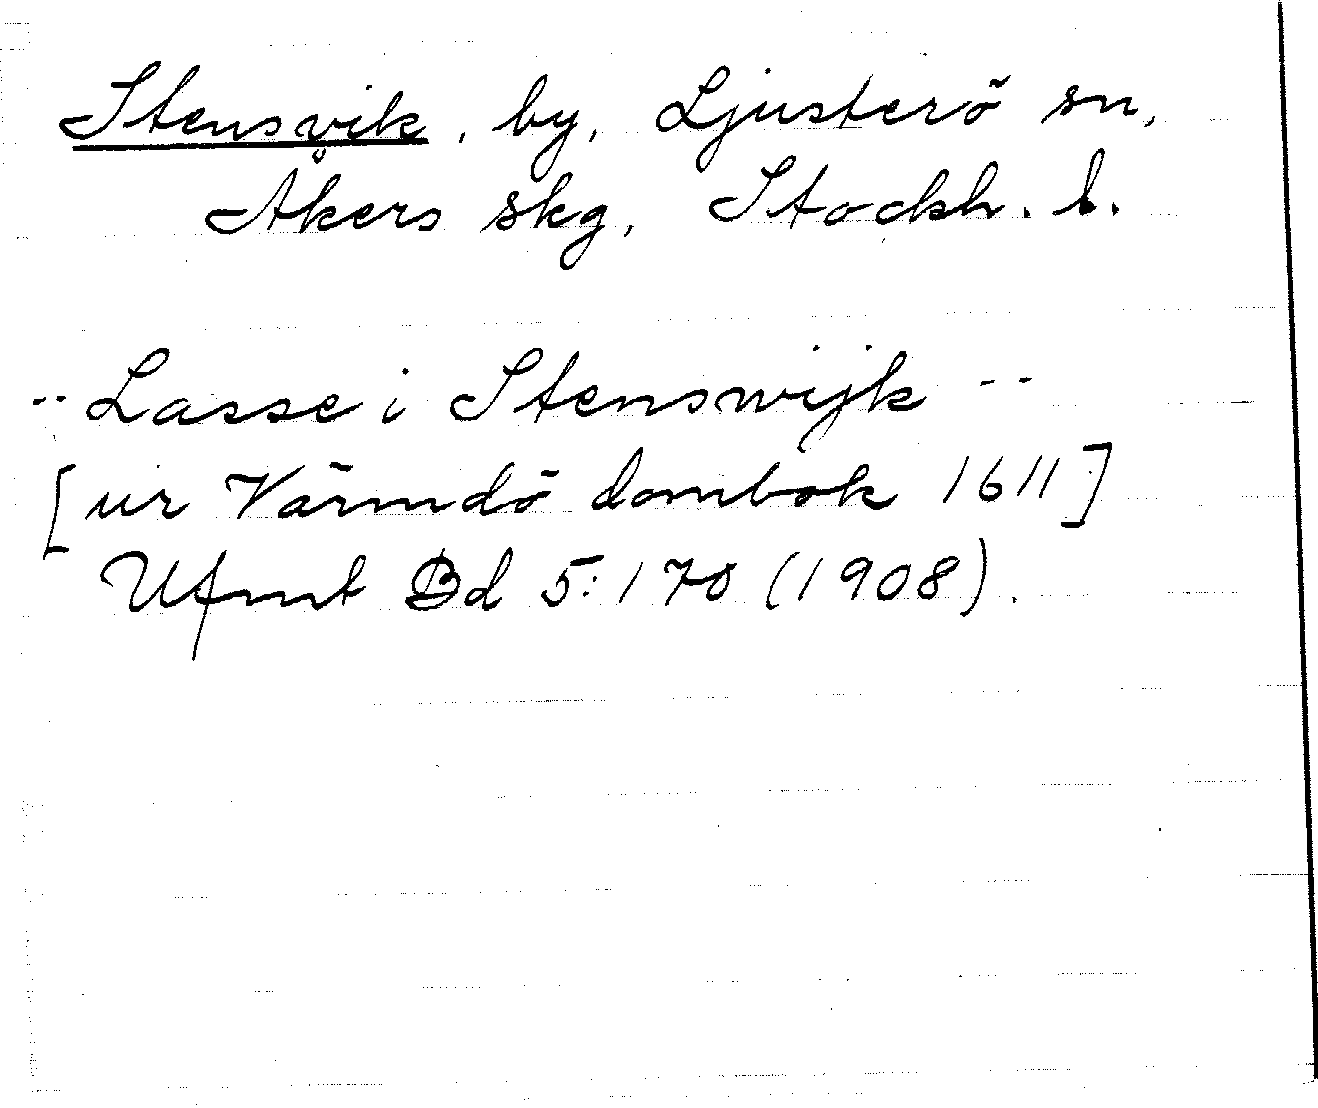 Stensvik, by, Ljusterö sn,
Åkers skg, Stockh. l.
-- Lasse i Stenswijk --
[ur Värmdö dombok 1611]
Ufmt Bd 5:170 (1908).